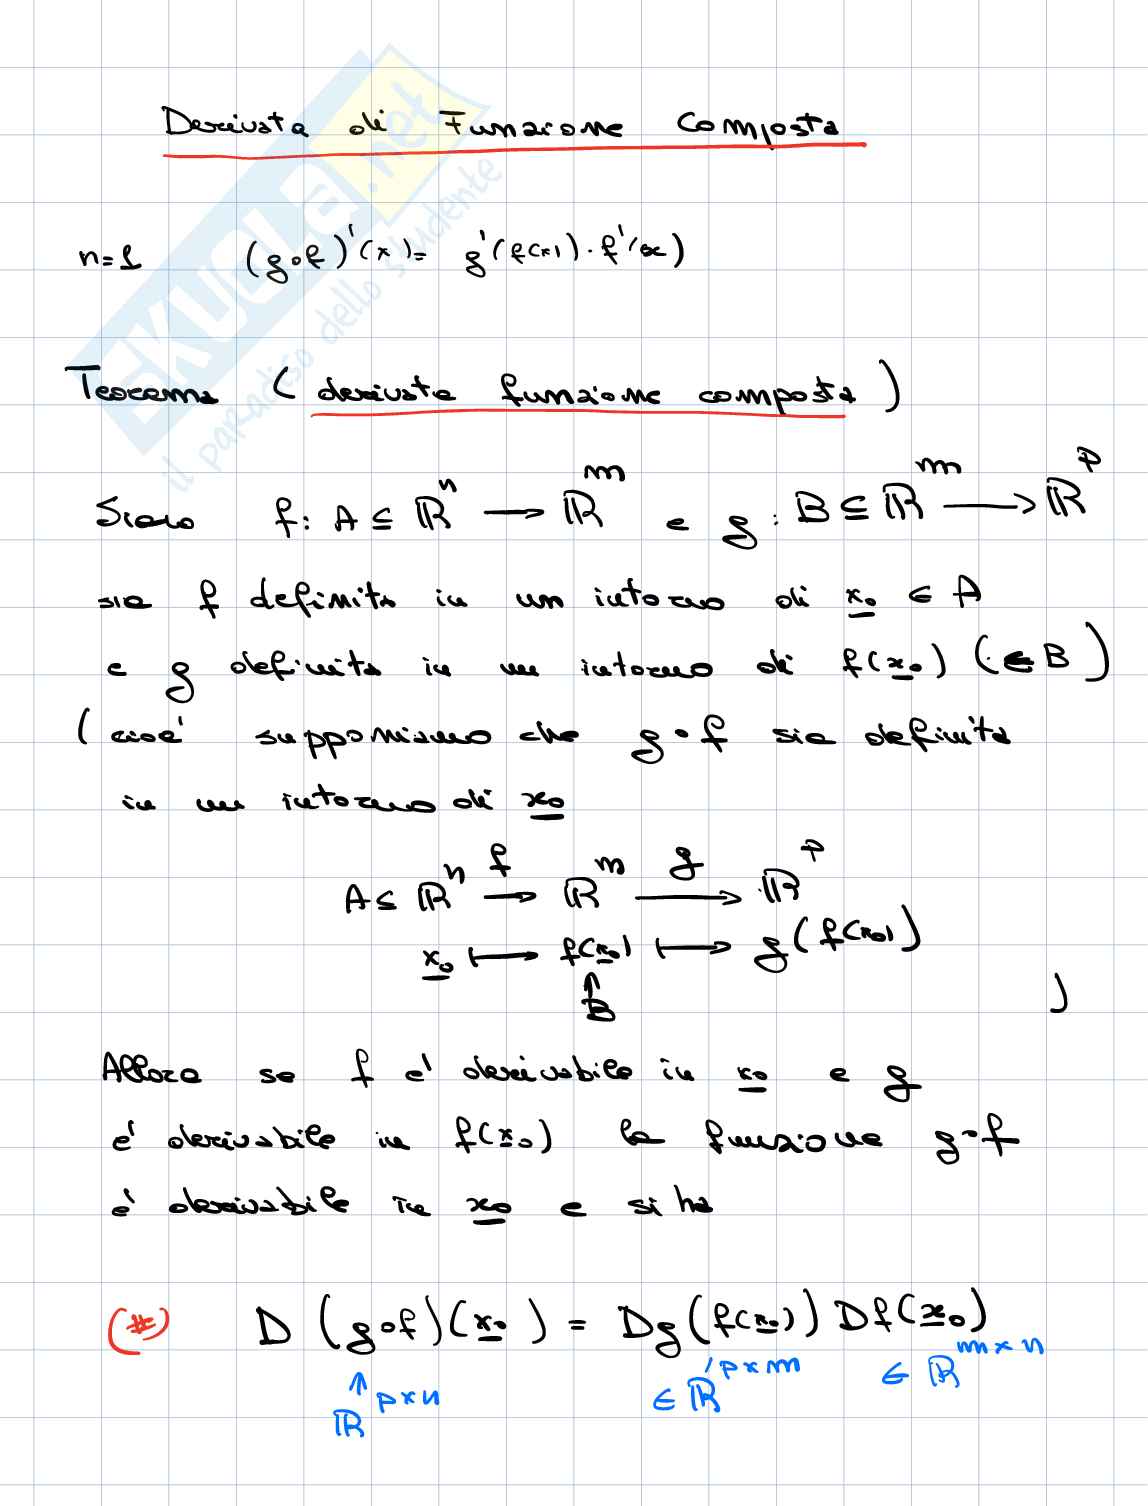 Derivata di Funzione Composta
n=1 (g∘f)'(x)= g'(f(x))·f'(x)
Teorema (derivata funzione composta)
Siano f: A ⊆ ℝⁿ ⟶ ℝᵐ e g: B ⊆ ℝᵐ ⟶ ℝᵖ
sia f definita in un intorno di x₀ ∈ A
e g definita in un intorno di f(x₀) (∈ B)
(cioè supponiamo che g∘f sia definita
in un intorno di x₀
A ⊆ ℝⁿ ⟶ᶠ ℝᵐ ⟶ᵍ ℝᵖ
x₀ ⟼ f(x₀) ⟼ g(f(x₀))
↑
B )
Allora se f e' derivabile in x₀ e g
e' derivabile in f(x₀) la funzione g∘f
e' derivabile in x₀ e si ha
(*) D(g∘f)(x₀) = Dg(f(x₀)) Df(x₀)
↑ ℝᵖˣⁿ ∈ ℝᵖˣᵐ ∈ ℝᵐˣⁿ
SKUOLA.net
il paradiso dello studente